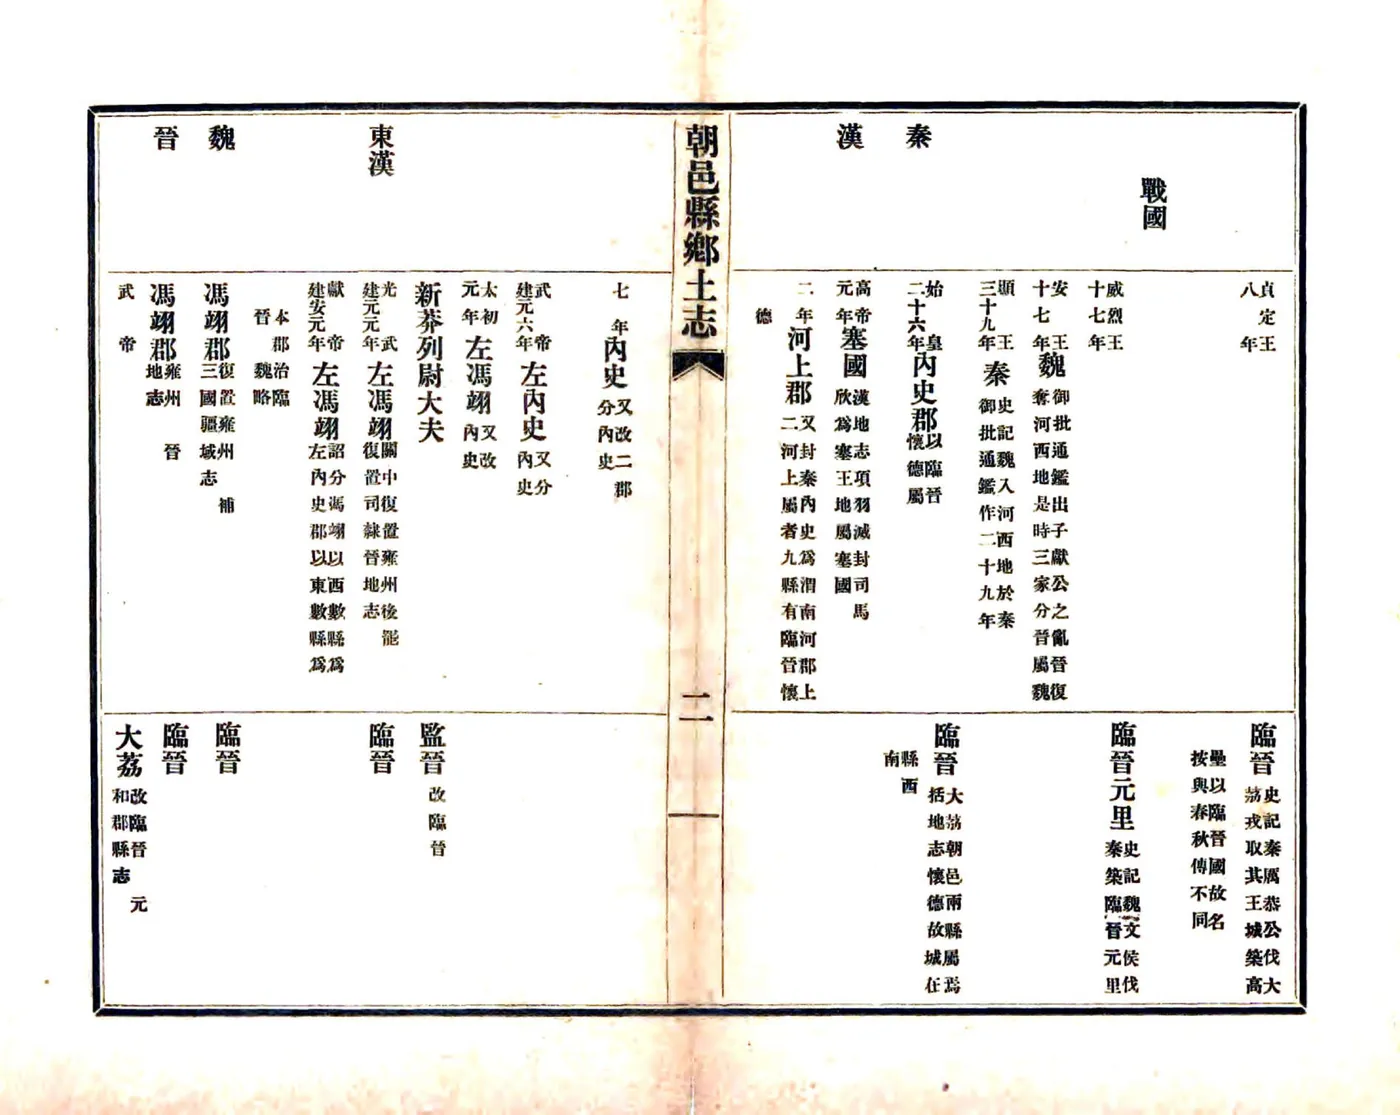 貞定王八年
臨晉 史記秦厲恭公伐大荔戎取其王城築高
壘以臨晉國故名按與春秋傳不同
戰國
威烈王十七年
臨晉元里 史記魏文侯伐秦築臨晉元里
安王十七年 魏 御批通鑑出子獻公之亂晉復奪河西地是時三家分晉屬魏
顯王三十九年 秦 史記魏入河西地於秦御批通鑑作二十九年
秦
始皇二十六年 內史郡 以臨晉懷德屬
臨晉 大荔朝邑兩縣屬焉括地志懷德故城在
縣西南
漢
高帝元年 塞國 漢地志項羽滅封司馬欣為塞王地屬塞國
二年 河上郡 又封秦內史為渭南河郡上二河上屬者九縣有臨晉懷
德
朝邑縣鄉土志
二
七年 內史 又改二郡分內史
武帝建元六年 左內史 又分內史
太初元年 左馮翊 又改內史
新莽列尉大夫
監晉 改臨晉
東漢
光武建元元年 左馮翊 關中復置雍州後罷復置司隸晉地志
臨晉
獻帝建安元年 左馮翊 詔分馮翊以西數縣為左內史郡以東數縣為
本郡治臨晉魏略
魏
馮翊郡 復置雍州補三國疆域志
臨晉
晉
馮翊郡 雍州晉地志
臨晉
武帝
大荔 改臨晉元和郡縣志